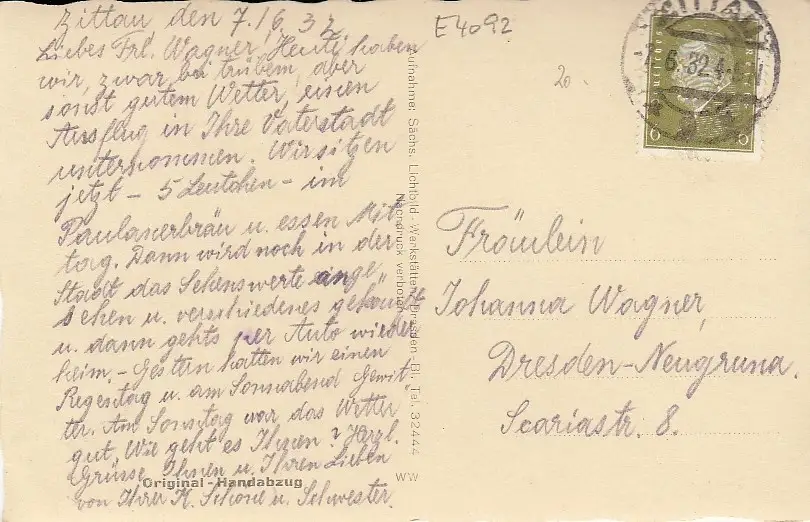 Zittau den 7./6.32
Liebes Frl. Wagner, Heute haben
wir, zwar bei trübem, aber
sonst gutem Wetter, einen
Ausflug in Ihre Vaterstadt
unternommen. Wir sitzen
jetzt - 5 Leutchen - im
Paulanerbräu u. essen Mit
tag. Dann wird noch in der
Stadt das Sehenswerte ange
sehen u. verschiedenes gekauft
u. dann gehts per Auto wieder
heim. - Gestern hatten wir einen
Regentag u. am Sonnabend Gewit
ter. Am Sonntag war das Wetter
gut. Wie geht es Ihnen? Herzl.
Grüsse Ihnen u. Ihren Lieben
von Ihrer K. Schöne u. Schwester.
Original-Handabzug
Aufnahme: Sächs. Lichtbild-Werkstätten, Dresden-Bl. Tel. 32444
Nachdruck verboten
WW
E4092
20.
ZITTAU
6.32.4
Fräulein
Johanna Wagner,
Dresden-Neugruna.
Scariastr. 8.